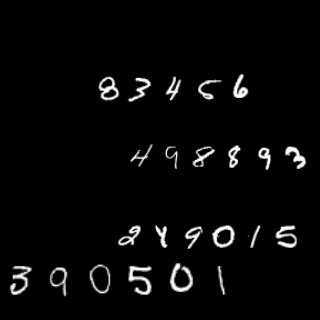 83456
498893
249015
390501